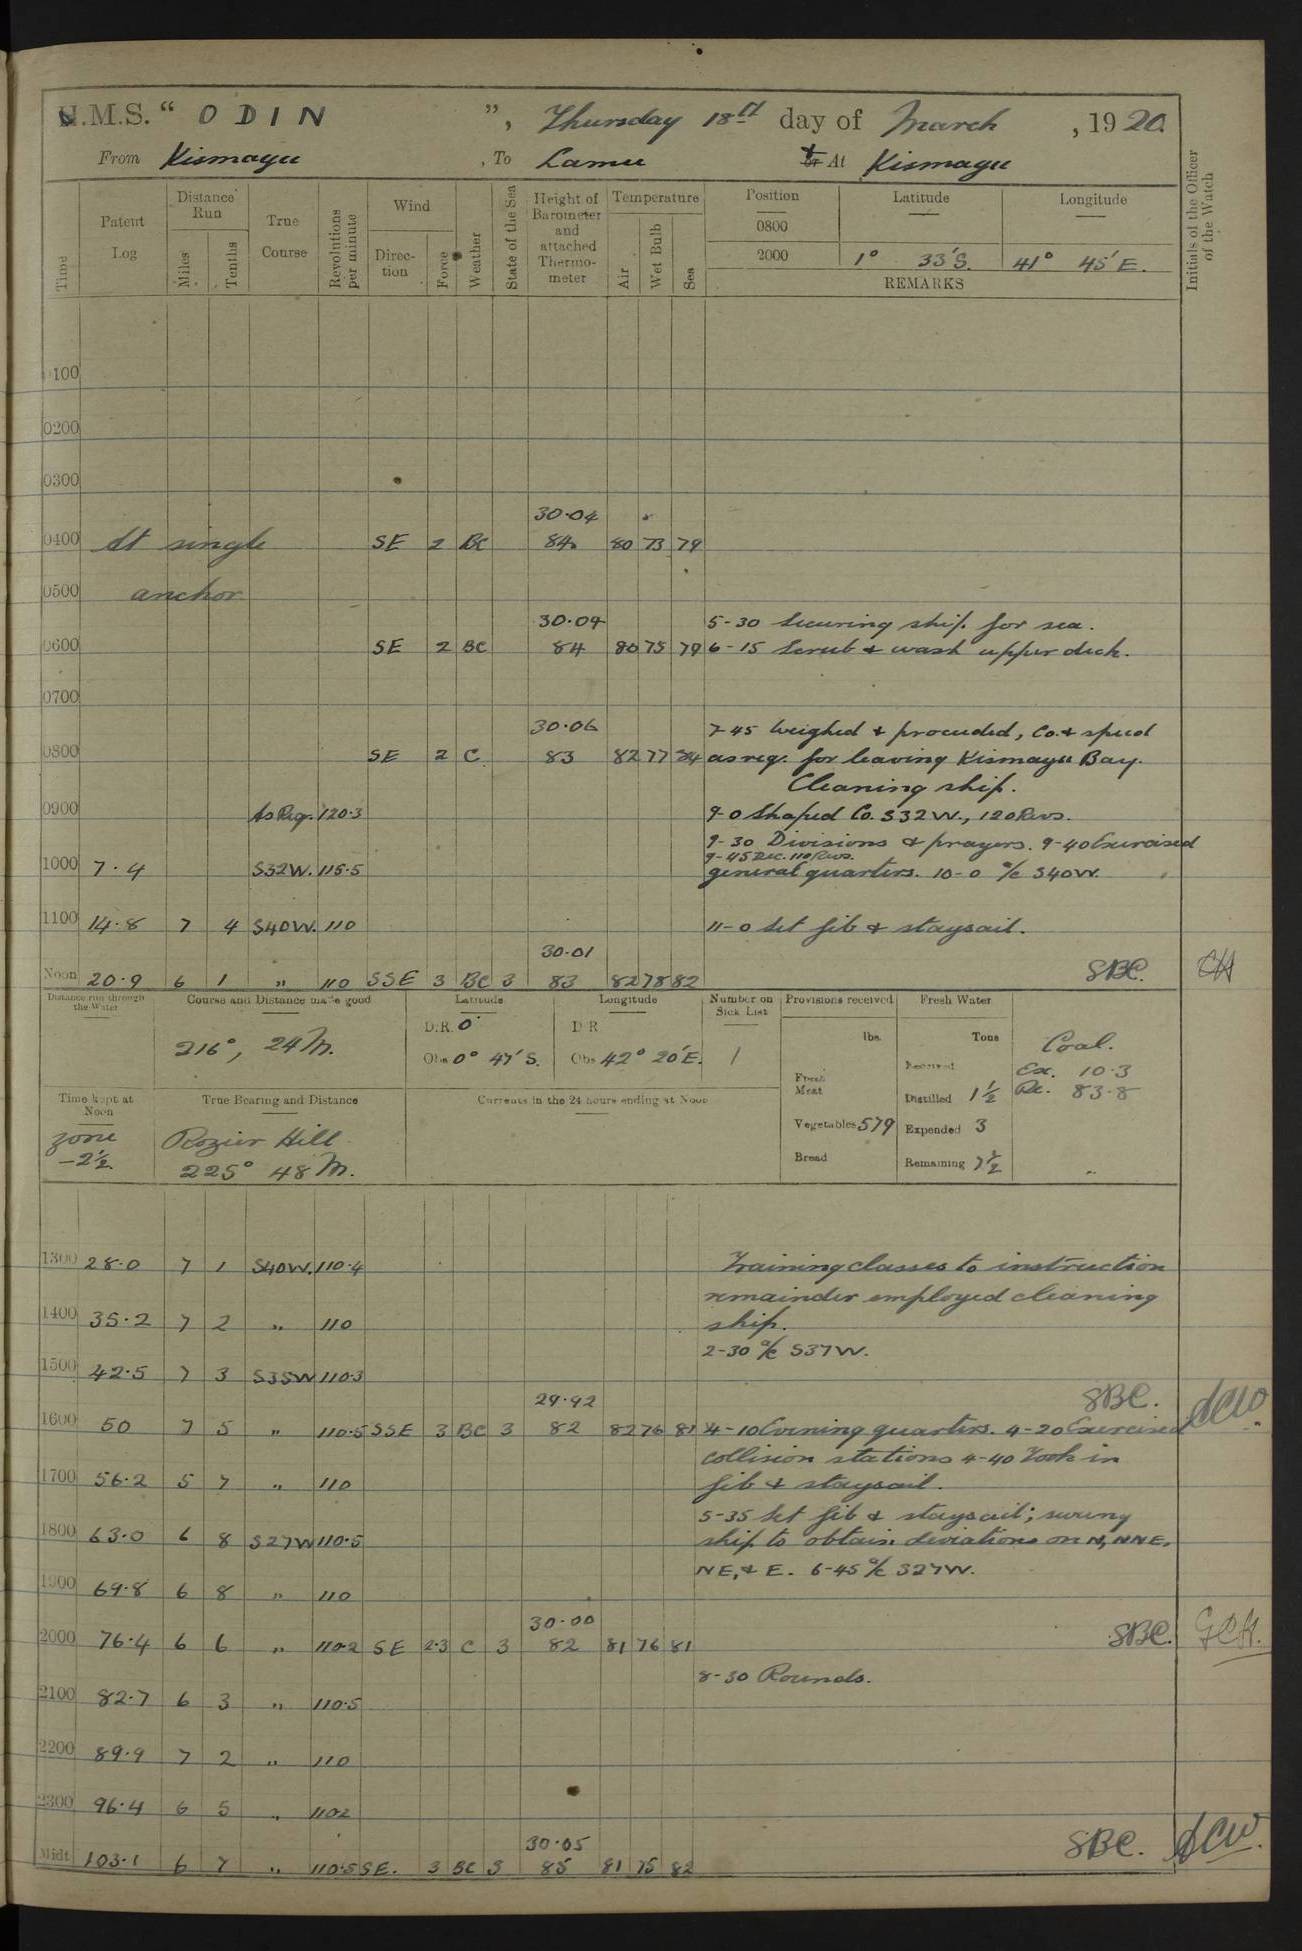 H.M.S. “ ODIN ”, Thursday 18th day of March , 1920.
From Kismayu , To Lamu or At Kismayu
Time
Patent Log
Distance Run
Miles
Tenths
True Course
Revolutions per minute
Wind
Direc-tion
Force
Weather
State of the Sea
Height of Barometer and attached Thermo-meter
Temperature
Air
Wet Bulb
Sea
Position
Latitude
Longitude
0800
2000 1° 33′ S. 41° 45′ E.
REMARKS
Initials of the Officer of the Watch
0100
0200
0300
30·04
0400 At single SE 2 BC 84 80 73 79
0500 anchor
30·04 5-30 Securing ship for sea.
0600 SE 2 BC 84 80 75 79 6-15 Scrub & wash upper deck.
0700
30·06 7-45 Weighed & proceeded, Co. & speed
0800 SE 2 C 83 82 77 84 as req. for leaving Kismayu Bay.
Cleaning ship.
0900 As Req. 120·3 9-0 Shaped Co. S32W., 120 Revs.
9-30 Divisions & prayers. 9-40 Exercised
9-45 Dec. 110 Revs.
1000 7·4 S32W. 115·5 general quarters. 10-0 a/c S40W.
1100 14·8 7 4 S40W. 110 11-0 Set jib & staysail.
30·01
Noon 20·9 6 1 " 110 SSE 3 BC 3 83 82 78 82 SBC.
Distance run through the Water
Course and Distance made good
216°, 24 M.
Latitude
D.R. 0°
Obs 0° 47′ S.
Longitude
D R
Obs 42° 20′ E.
Number on Sick List
1
Provisions received
lbs.
Fresh Meat
Vegetables 579
Bread
Fresh Water
Tons
Received
Distilled 1½
Expended 3
Remaining 7½
Coal.
Ex. 10·3
Re. 83·8
Time kept at Noon
zone
-2½
True Bearing and Distance
Rozier Hill
225° 48 M.
Currents in the 24 hours ending at Noon
1300 28·0 7 1 S40W. 110·4 Training classes to instruction
remainder employed cleaning
1400 35·2 7 2 " 110 ship.
2-30 a/c S37W.
1500 42·5 7 3 S35W 110·3
29·92 SBC.
1600 50 7 5 " 110·5 SSE 3 BC 3 82 82 76 81 4-10 Evening quarters. 4-20 Exercised
collision stations 4-40 Took in
1700 56·2 5 7 " 110 jib & staysail.
5-35 Set jib & staysail; swung
1800 63·0 6 8 S27W 110·5 ship to obtain deviations on N, NNE,
NE, & E. 6-45 a/c S27W.
1900 69·8 6 8 " 110
30·00
2000 76·4 6 6 " 110·2 SE 2·3 C 3 82 81 76 81 SBC.
8-30 Rounds.
2100 82·7 6 3 " 110·5
2200 89·9 7 2 " 110
2300 96·4 6 5 " 110·2
30·05
Midt 103·1 6 7 " 110·5 SE. 3 BC 3 85 81 75 82 SBC.